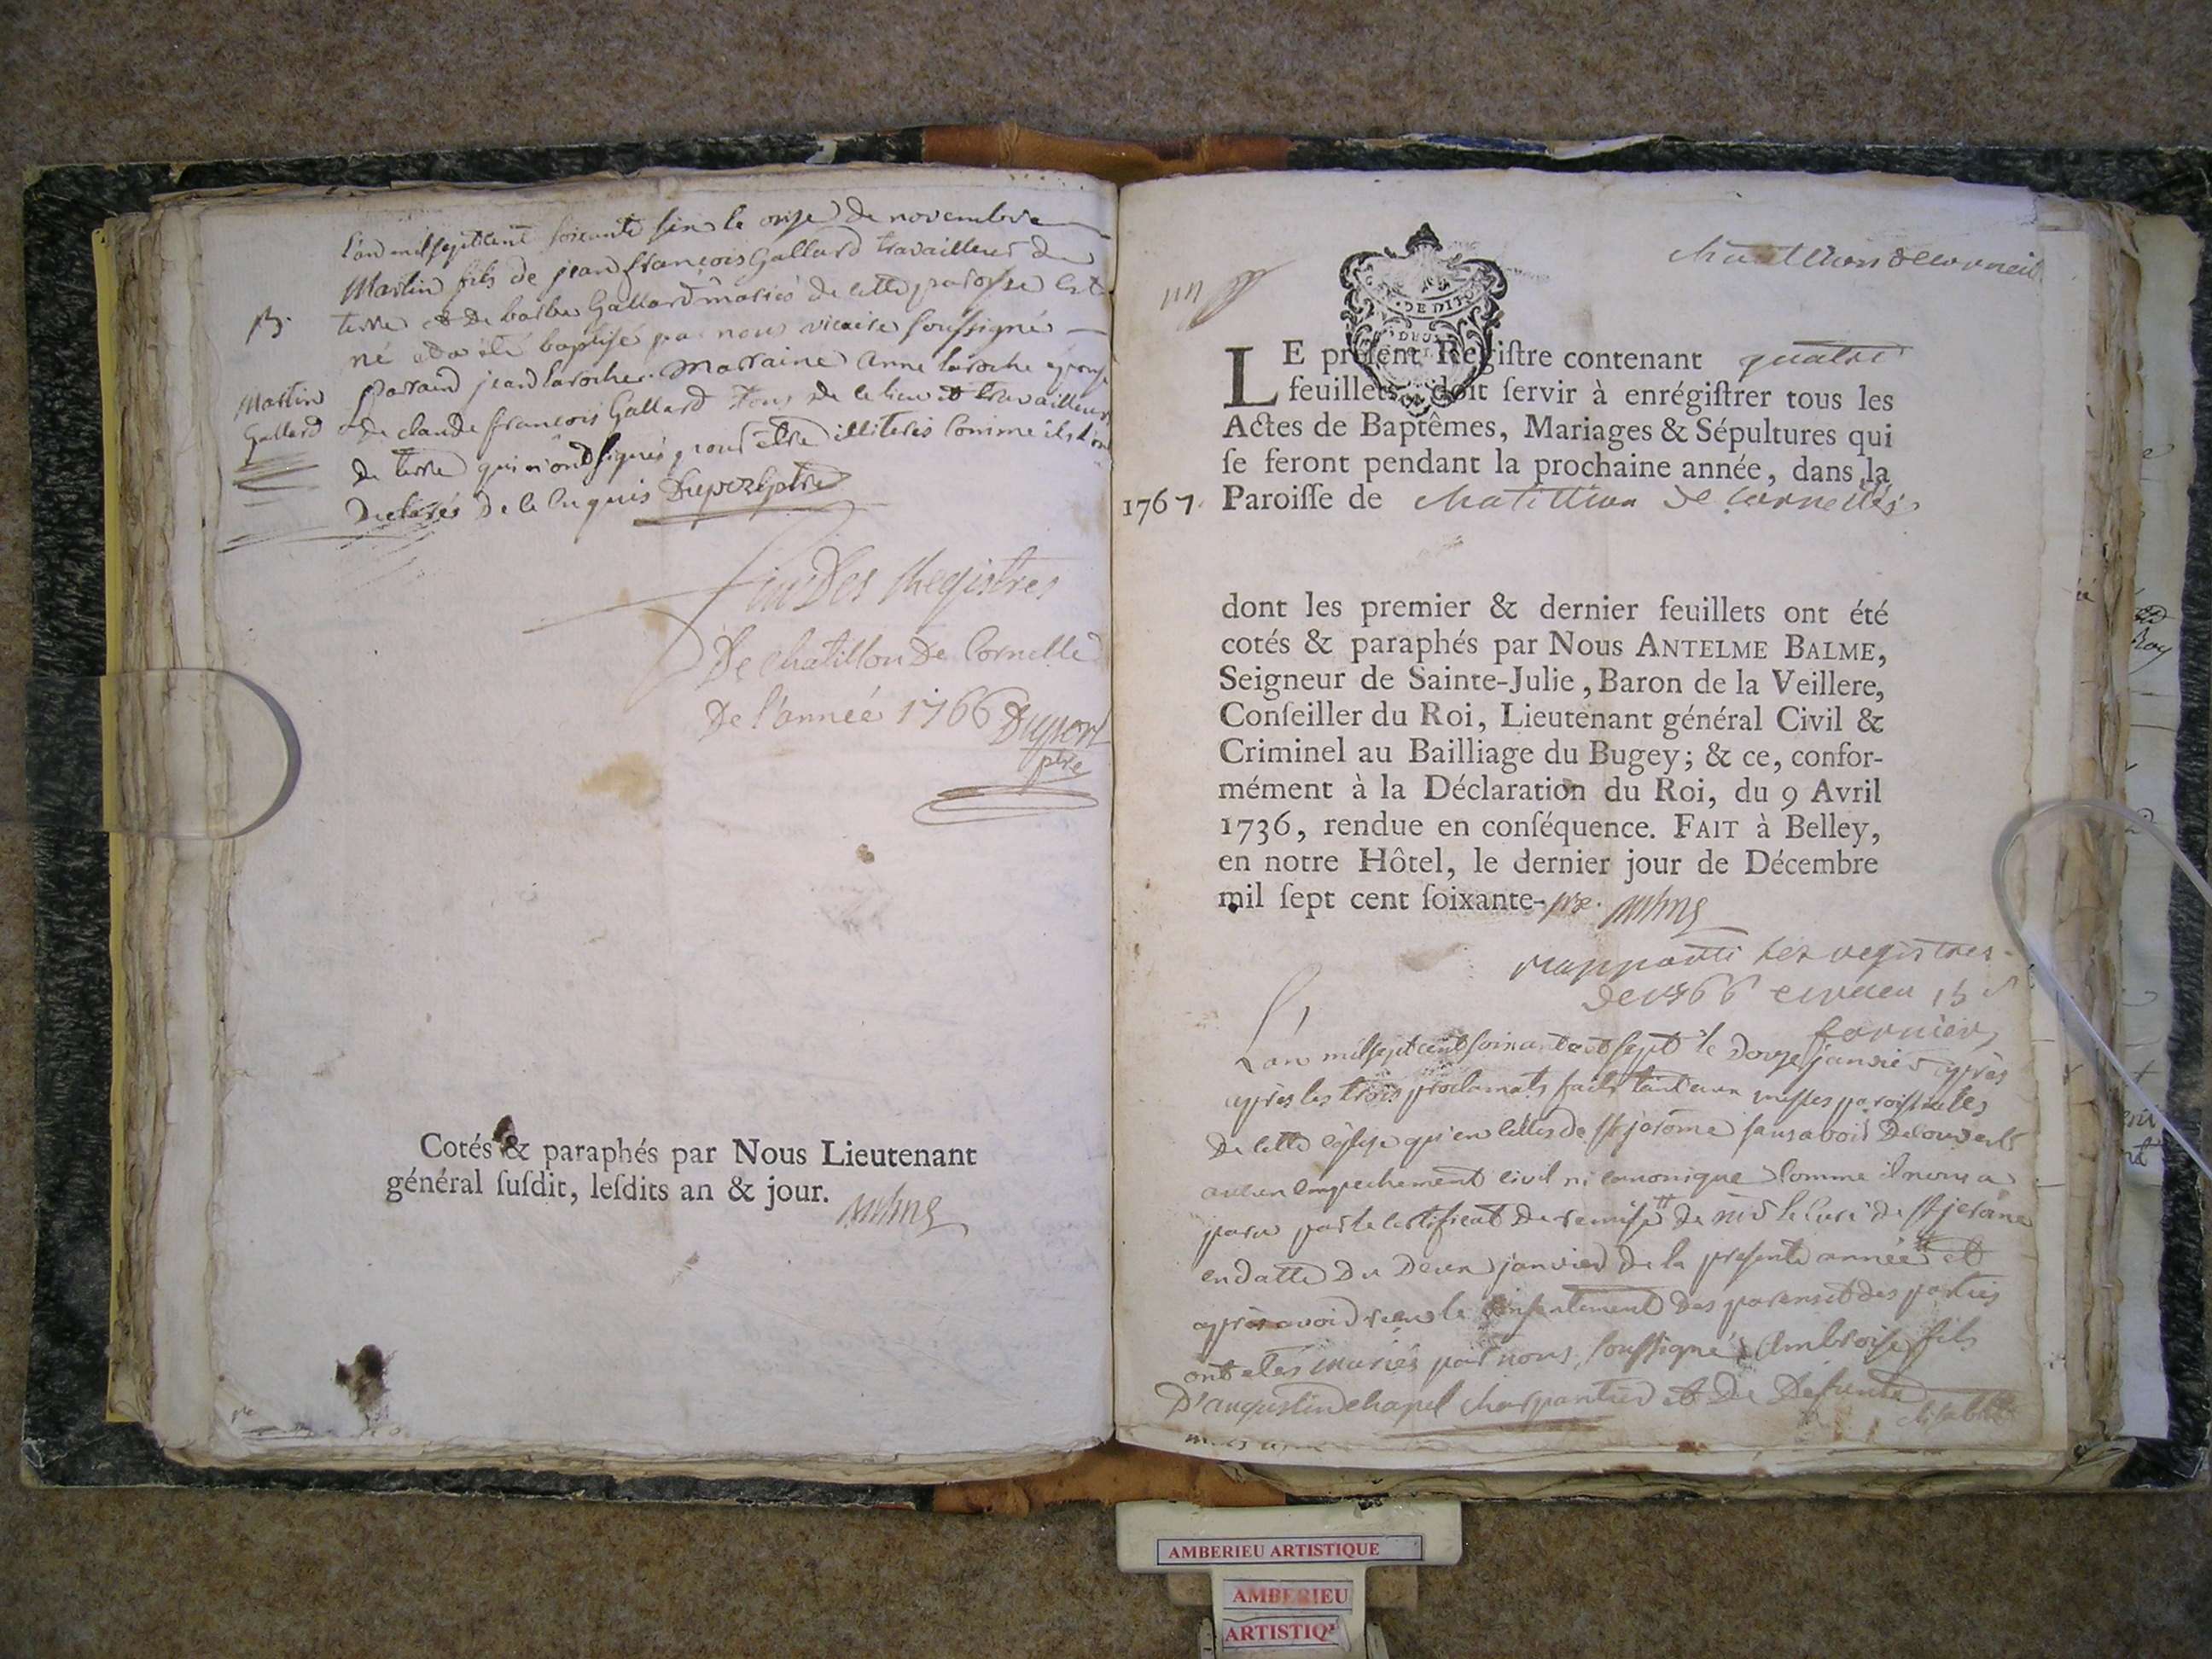 L'an mil sept cent soixante six le onze de novembre
Martin fils de jean françois Gallard travailleur de
terre et de barbe Gallard mariés de cette paroisse est
B.
né et a été baptisé par nous vicaire soussigné
Martin
Gallard
Parrain jean laroche. Marraine Anne laroche epouse
de claude françois Gallard tous de ce lieu et travailleurs
de terre qui n'ont signés pour être illiterés comme ils l'ont
declarés de ce enquis Dupor ptre
fin Des Registres
De chatillon De Cornelle
De l'année 1766 Duport
ptre
Cotés & paraphés par Nous Lieutenant
général ſuſdit, leſdits an & jour.
Chatillon de corneille
DE DIJO
LE préſent Regiſtre contenant quatre
feuillets doit ſervir à enrégiſtrer tous les
Actes de Baptêmes, Mariages & Sépultures qui
ſe feront pendant la prochaine année, dans la
1767. Paroiſſe de Chatillion de Cornelles
dont les premier & dernier feuillets ont été
cotés & paraphés par Nous ANTELME BALME,
Seigneur de Sainte-Julie, Baron de la Veillere,
Conſeiller du Roi, Lieutenant général Civil &
Criminel au Bailliage du Bugey; & ce, confor-
mément à la Déclaration du Roi, du 9 Avril
1736, rendue en conſéquence. FAIT à Belley,
en notre Hôtel, le dernier jour de Décembre
mil ſept cent ſoixante-
rapporté les registres
de 1766
L'an mil sept cent soixante et sept le douze janvier après
après les trois proclamats faits tant aux messes paroissiales
De cette église qu'en celles de st jerome sans avoir Decouvert
aucun empechement civil ni canonique comme il nous a
paru par le certificat de remise de mr le curé de st jerôme
en datte Du Deux janvier de la presente année et
après avoir reçu le consentement des parens et des parties
ont etés mariés par nous soussigné Ambroise fils
D'augustin chapel charpantier et De Defunte
AMBERIEU ARTISTIQUE
AMBERIEU
ARTISTIQ